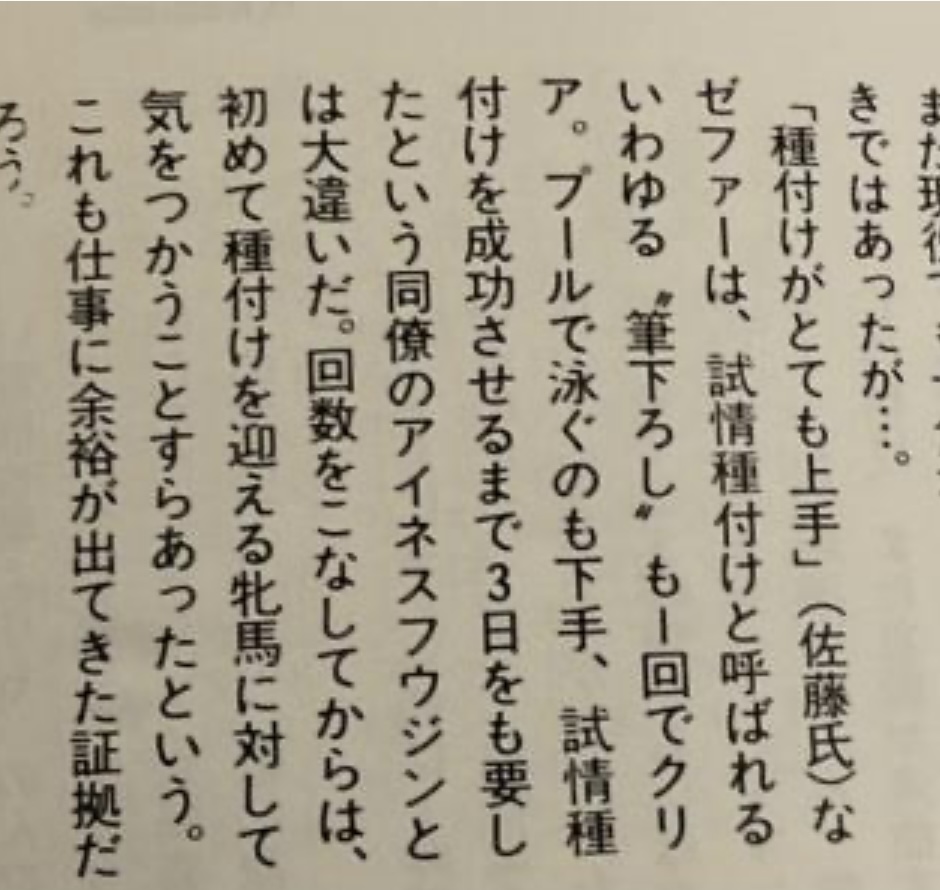 きではあったが…。
「種付けがとても上手」（佐藤氏）な
ゼファーは、試情種付けと呼ばれる
いわゆる〝筆下ろし〟も一回でクリ
ア。プールで泳ぐのも下手、試情種
付けを成功させるまで3日をも要し
たという同僚のアイネスフウジンと
は大違いだ。回数をこなしてからは、
初めて種付けを迎える牝馬に対して
気をつかうことすらあったという。
これも仕事に余裕が出てきた証拠だ
ろう。